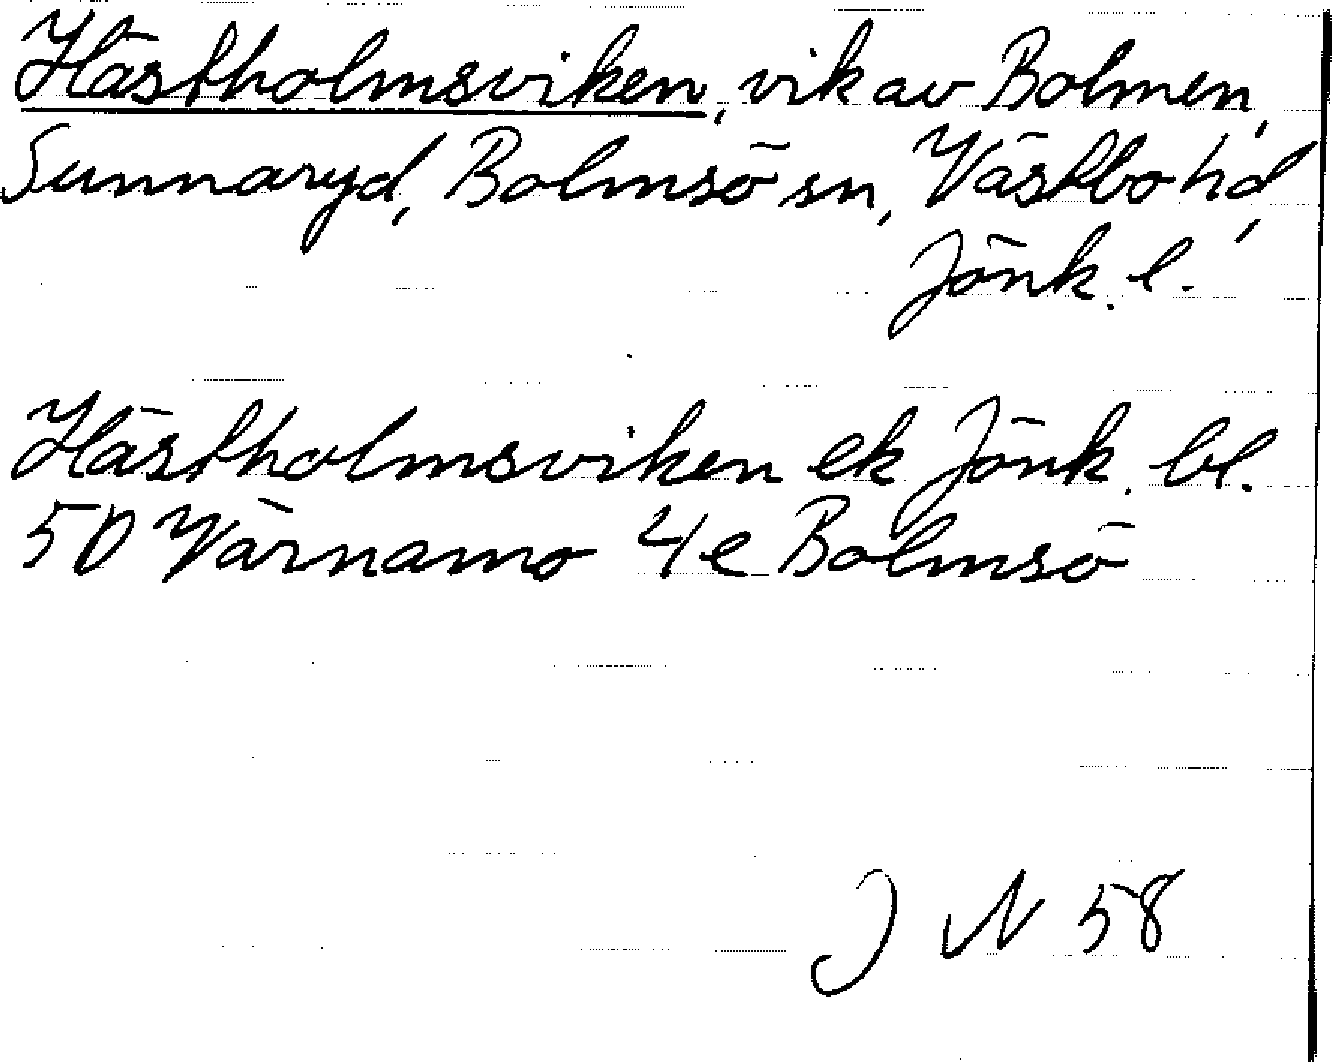 Hästholmsviken, vik av Bolmen,
Sunnaryd, Bolmsö sn, Västbo hd,
Jönk. l.
Hästholmsviken ek Jönk. bl.
50 Värnamo 4e Bolmsö
J N 58